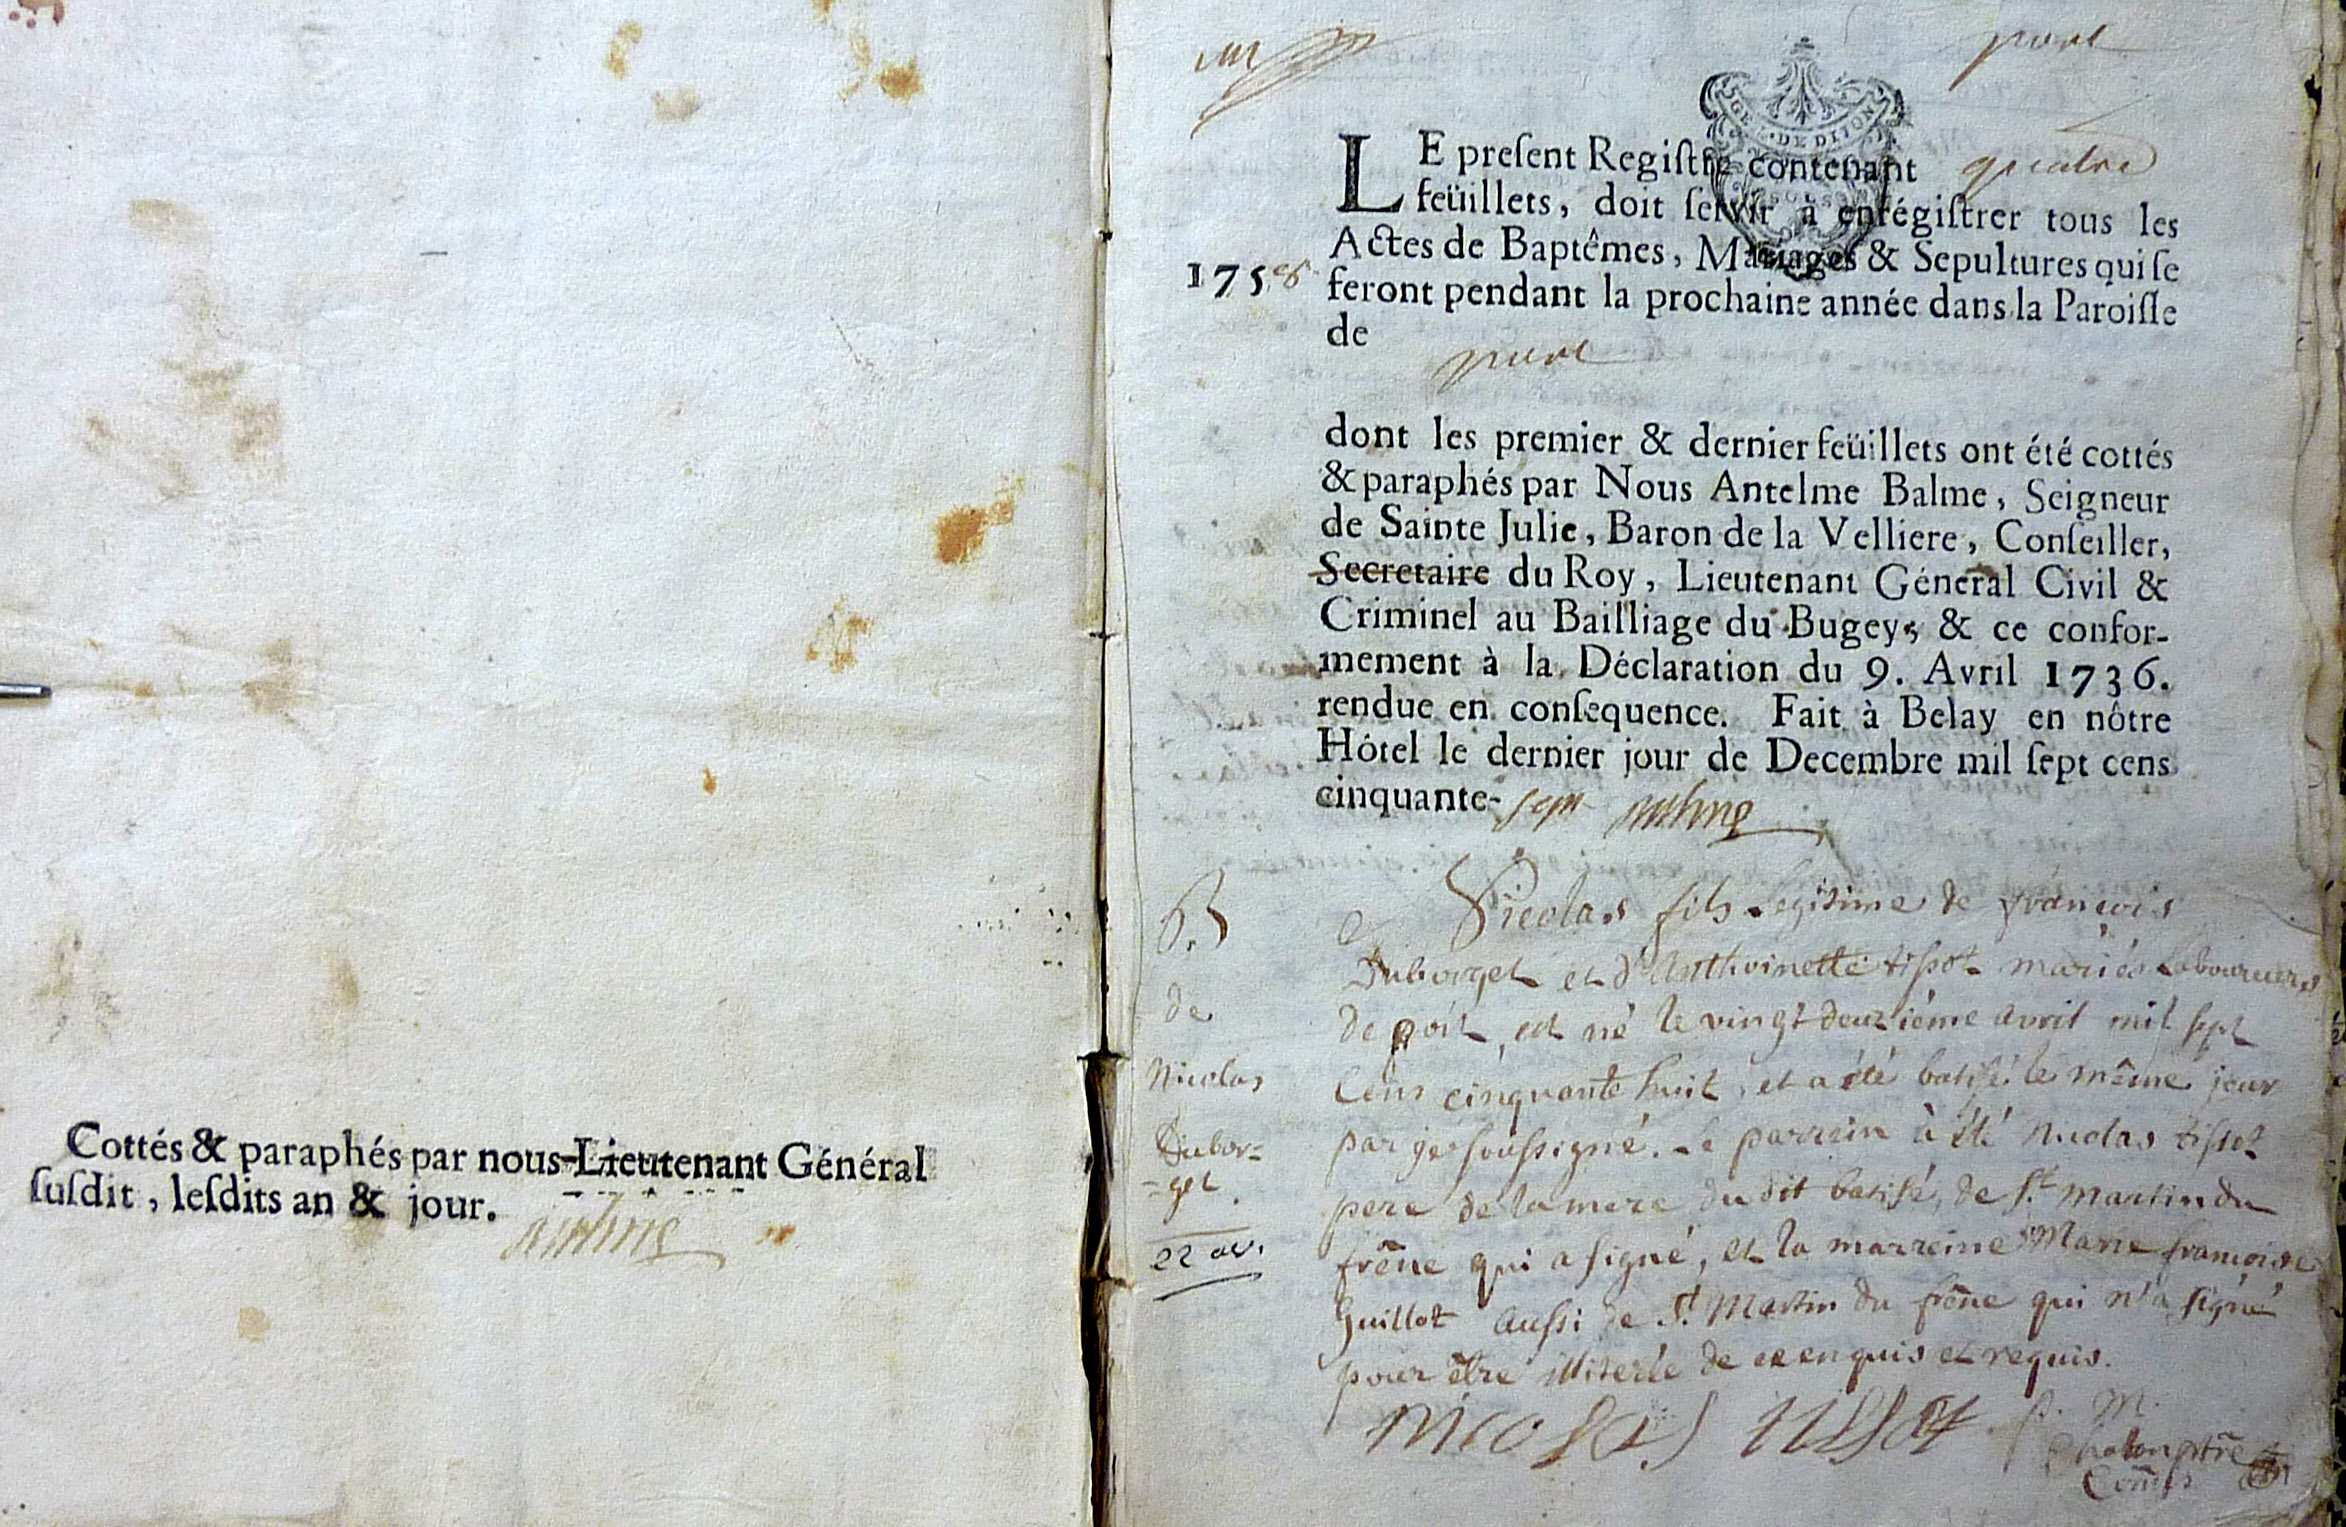 Cottés & paraphés par nous Lieutenant Général
ſuſdit, leſdits an & jour.
LE preſent Regiſtre contenant quatre
feüillets, doit ſervir à enrégiſtrer tous les
Actes de Baptêmes, Mariages & Sepultures qui ſe
1758
feront pendant la prochaine année dans la Paroiſſe
de
dont les premier & dernier feüillets ont été cottés
& paraphés par Nous Antelme Balme, Seigneur
de Sainte Julie, Baron de la Velliere, Conſeiller,
Secretaire du Roy, Lieutenant Géneral Civil &
Criminel au Bailliage du Bugey, & ce confor-
mement à la Déclaration du 9. Avril 1736.
rendue en conſequence. Fait à Belay en nôtre
Hôtel le dernier jour de Decembre mil ſept cens
cinquante-sept
B.
de
Nicolas
Dubor=
=get.
22 av.
Nicolas fils legitime de françois
Duborget et d'Anthoinette tissot mariés laboureurs
de poit, est né le vingt deuxième avril mil sept
cens cinquante huit, et a été batisé le même jour
par je soussigné. Le parrein à été Nicolas tissot
pere de la mere du dit batisé, de St martin du
frêne qui a signé, et la marreine Marie françoise
Guillot aussi de St Martin du frêne qui n'a signé
pour être illiterée de ce enquis et requis.
nicolas tissot